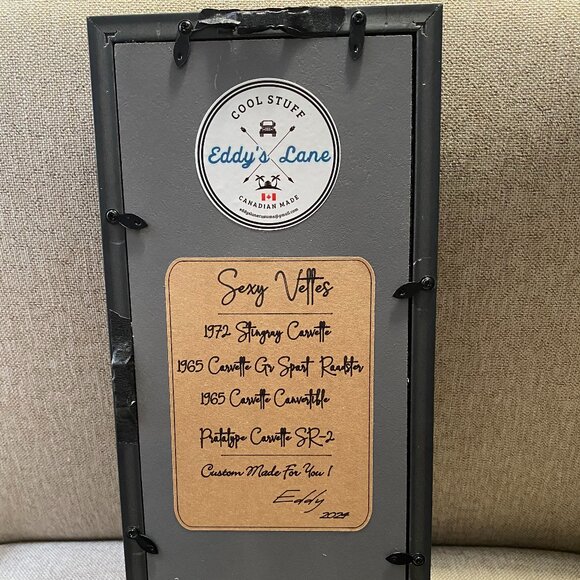 COOL STUFF
Eddy's Lane
CANADIAN MADE
eddyslanecustoms@gmail.com
Sexy Vettes
1972 Stingray Corvette
1965 Corvette Gr Sport Roadster
1965 Corvette Convertible
Prototype Corvette SR-2
Custom Made For You !
Eddy
2024